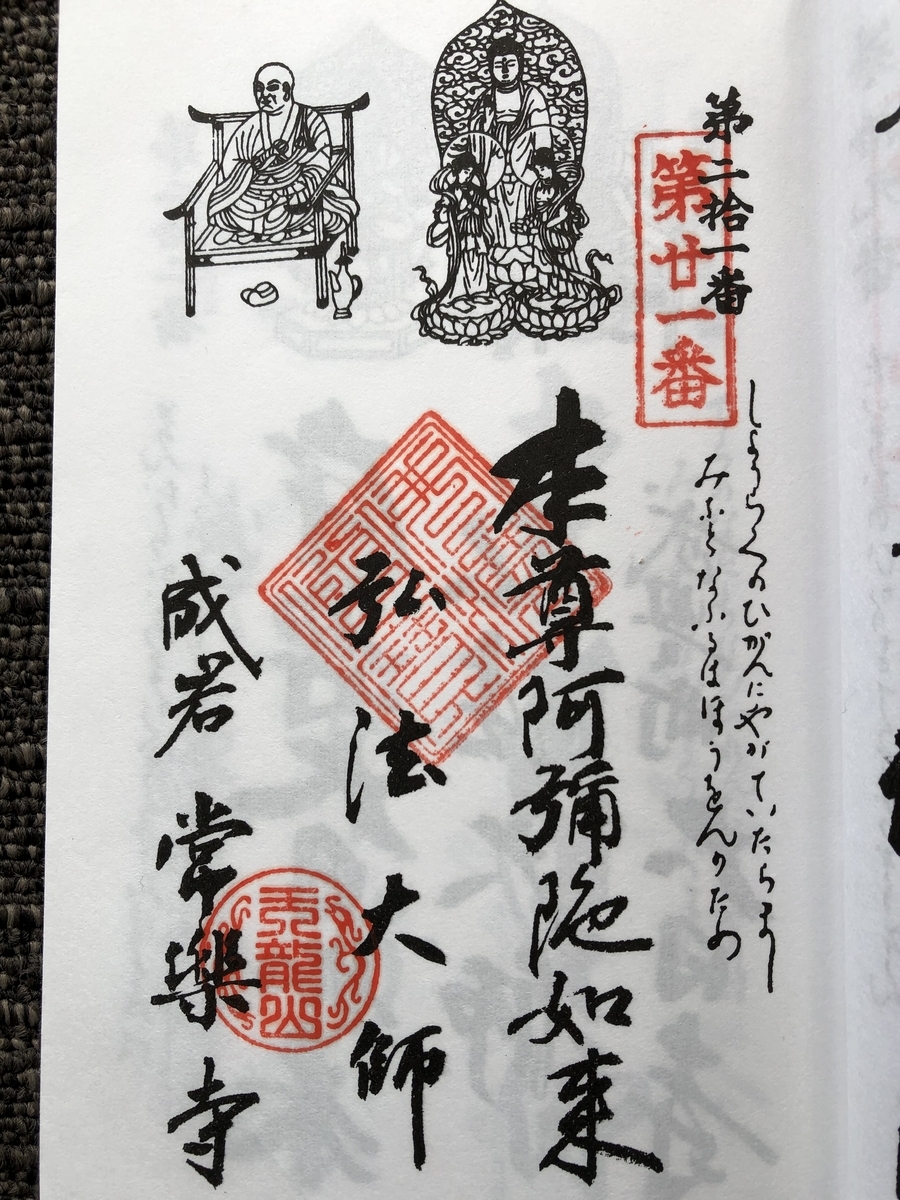 第二拾一番
第廿一番
しょうらくのひがんにやがていたらまし
みふとなふるはほうをんのため
本尊阿彌陀如来
弘法大師
成岩 常樂寺
天龍山